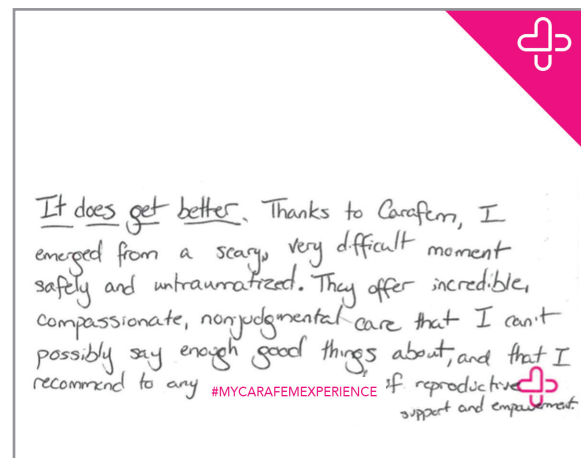 It does get better. Thanks to Carafem, I
emerged from a scary, very difficult moment
safely and untraumatized. They offer incredible,
compassionate, nonjudgmental care that I can't
possibly say enough good things about, and that I
recommend to any #MYCARAFEMEXPERIENCE if reproductive
support and empowerment.